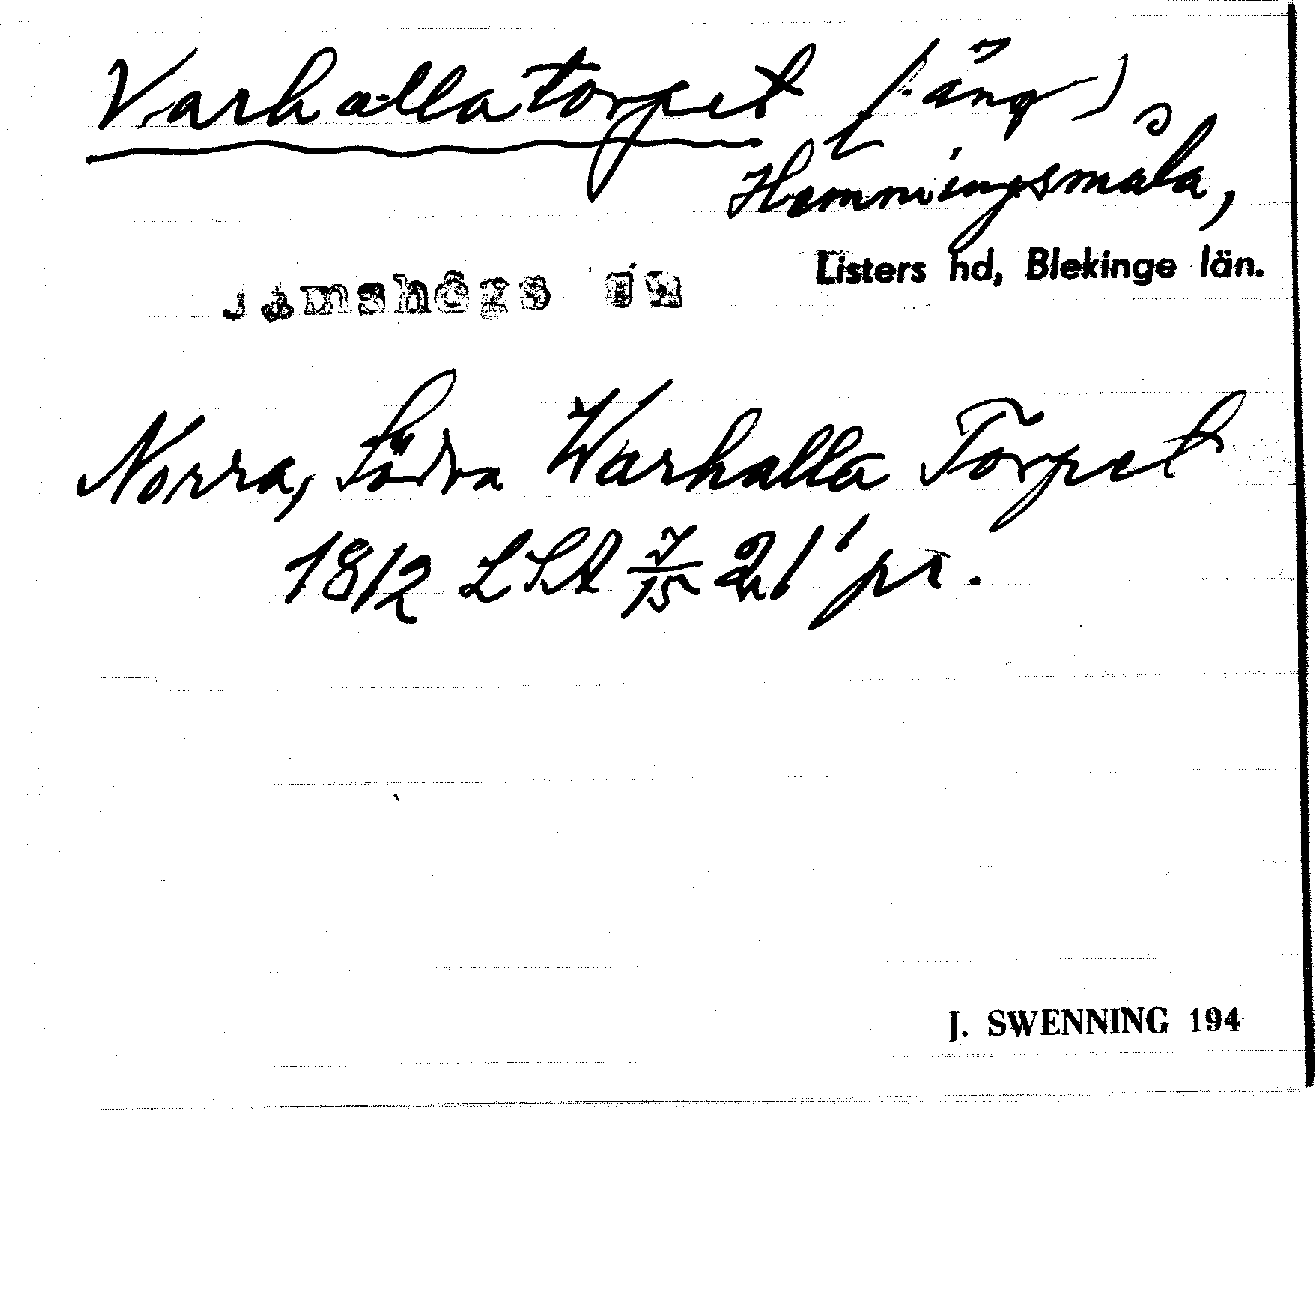 Varhallatorpet (äng)
Hemmingsmåla,
Listers hd, Blekinge län.
Jämshögs sn
Norra, Södra Warhalla Torpet
1812 LSA 7/15 21' pr.
J. SWENNING 194